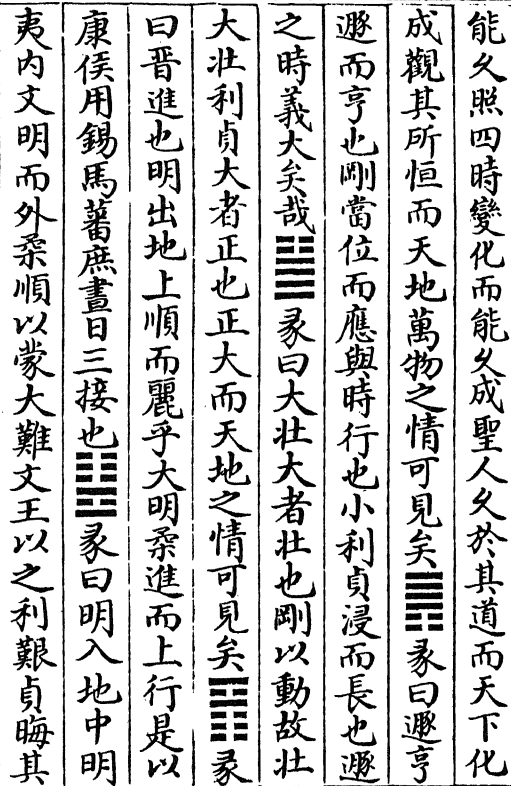 能久照四時變化而能久成聖人久於其道而天下化
成觀其所恒而天地萬物之情可見矣䷠彖曰遯亨
遯而亨也剛當位而應與時行也小利貞浸而長也遯
之時義大矣哉䷡彖曰大壯大者壯也剛以動故壯
大壯利貞大者正也正大而天地之情可見矣䷢彖
曰晉進也明出地上順而麗乎大明柔進而上行是以
康侯用錫馬蕃庶晝日三接也䷣彖曰明入地中明
夷內文明而外柔順以蒙大難文王以之利艱貞晦其